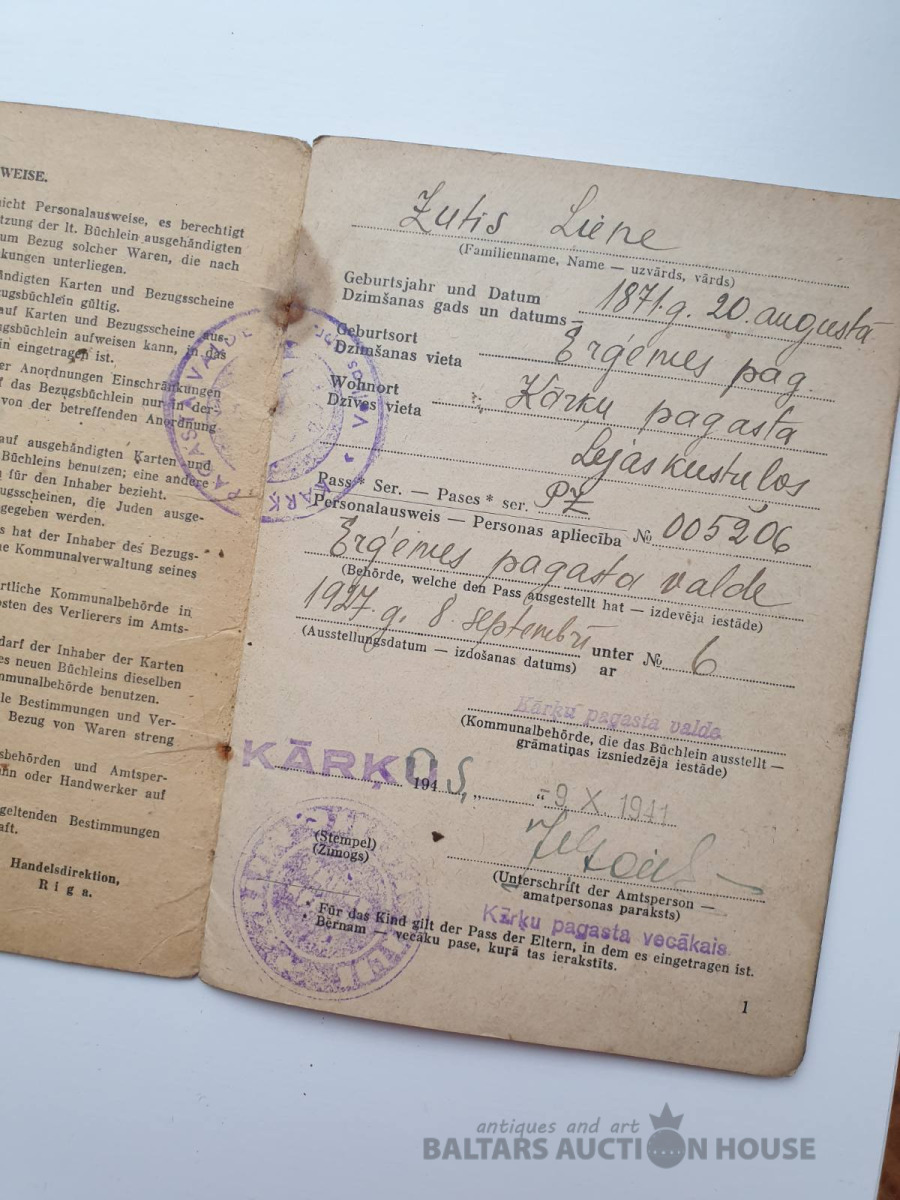 WEISE.
nicht Personalausweise, es berechtigt
tzung der lt. Büchlein ausgehändigten
um Bezug solcher Waren, die nach
kungen unterliegen.
ändigten Karten und Bezugsscheine
zugsbüchlein gültig.
auf Karten und Bezugsscheine aus-
ugsbüchlein aufweisen kann, in das
in eingetragen ist.
er Anordnungen Einschränkungen
f das Bezugsbüchlein nur in der
von der betreffenden Anordnung
auf ausgehändigten Karten und
Büchleins benutzen; eine andere
für den Inhaber bezieht.
ugsscheinen, die Juden ausge-
gegeben werden.
s hat der Inhaber des Bezugs-
he Kommunalverwaltung seines
örtliche Kommunalbehörde in
osten des Verlierers im Amts-
darf der Inhaber der Karten
es neuen Büchleins dieselben
mmunalbehörde benutzen.
le Bestimmungen und Ver-
Bezug von Waren streng
sbehörden und Amtsper-
ann oder Handwerker auf
geltenden Bestimmungen
aft.
Handelsdirektion,
Riga.
PAGASTA VALDE
Zutis Liene
(Familienname, Name — uzvārds, vārds)
Geburtsjahr und Datum
Dzimšanas gads un datums 1871.g. 20. augustā
Geburtsort
Dzimšanas vieta Ērģemes pag.
Wohnort
Dzīves vieta Kārķu pagasta
Lejaskustulos
Pass * Ser. — Pases * ser. PZ
Personalausweis — Personas apliecība № 005206
Ērģemes pagasta valde
(Behörde, welche den Pass ausgestellt hat — izdevēja iestāde)
1927.g. 8. septembrī unter № 6
(Ausstellungsdatum — izdošanas datums) ar
Kārķu pagasta valde
(Kommunalbehörde, die das Büchlein ausstellt —
grāmatiņas izsniedzēja iestāde)
KĀRĶOS, 194 „ “ -9 X. 1941
(Stempel)
(Zīmogs)
(Unterschrift der Amtsperson —
amatpersonas paraksts)
Kārķu pagasta vecākais
* Für das Kind gilt der Pass der Eltern, in dem es eingetragen ist.
Bērnam — vecāku pase, kurā tas ierakstīts.
1
antiques and art
BALTARS AUCTION HOUSE